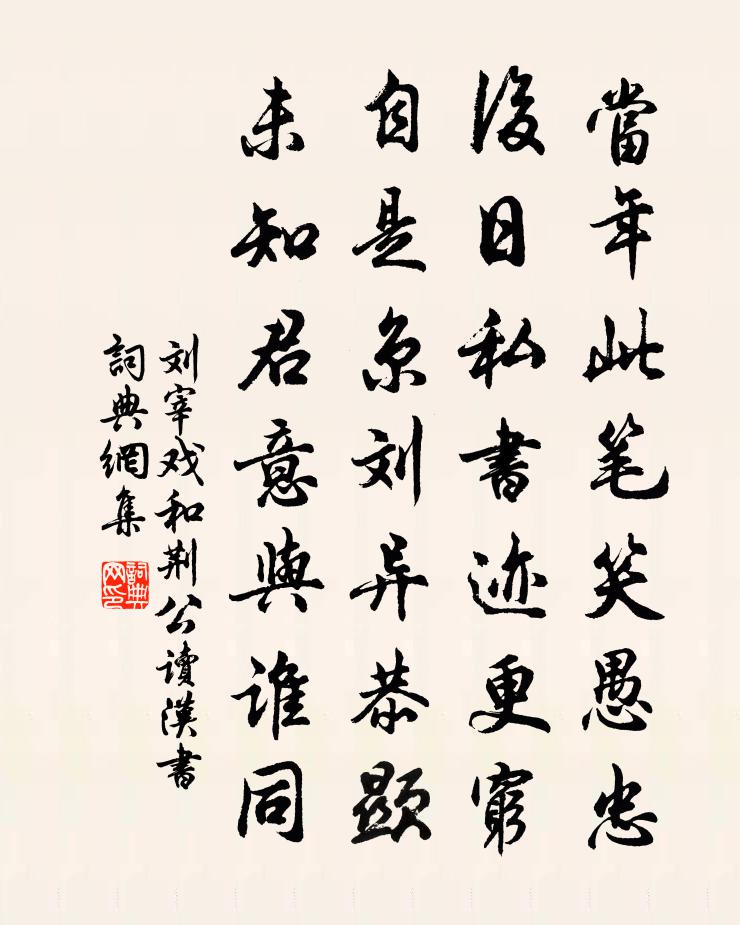 當年此笔笑愚忠
後日私書迹更窮
自是京刘异恭顯
未知君意與誰同
刘宰戏和荆公讀漢書
詞典網集
詞典网印